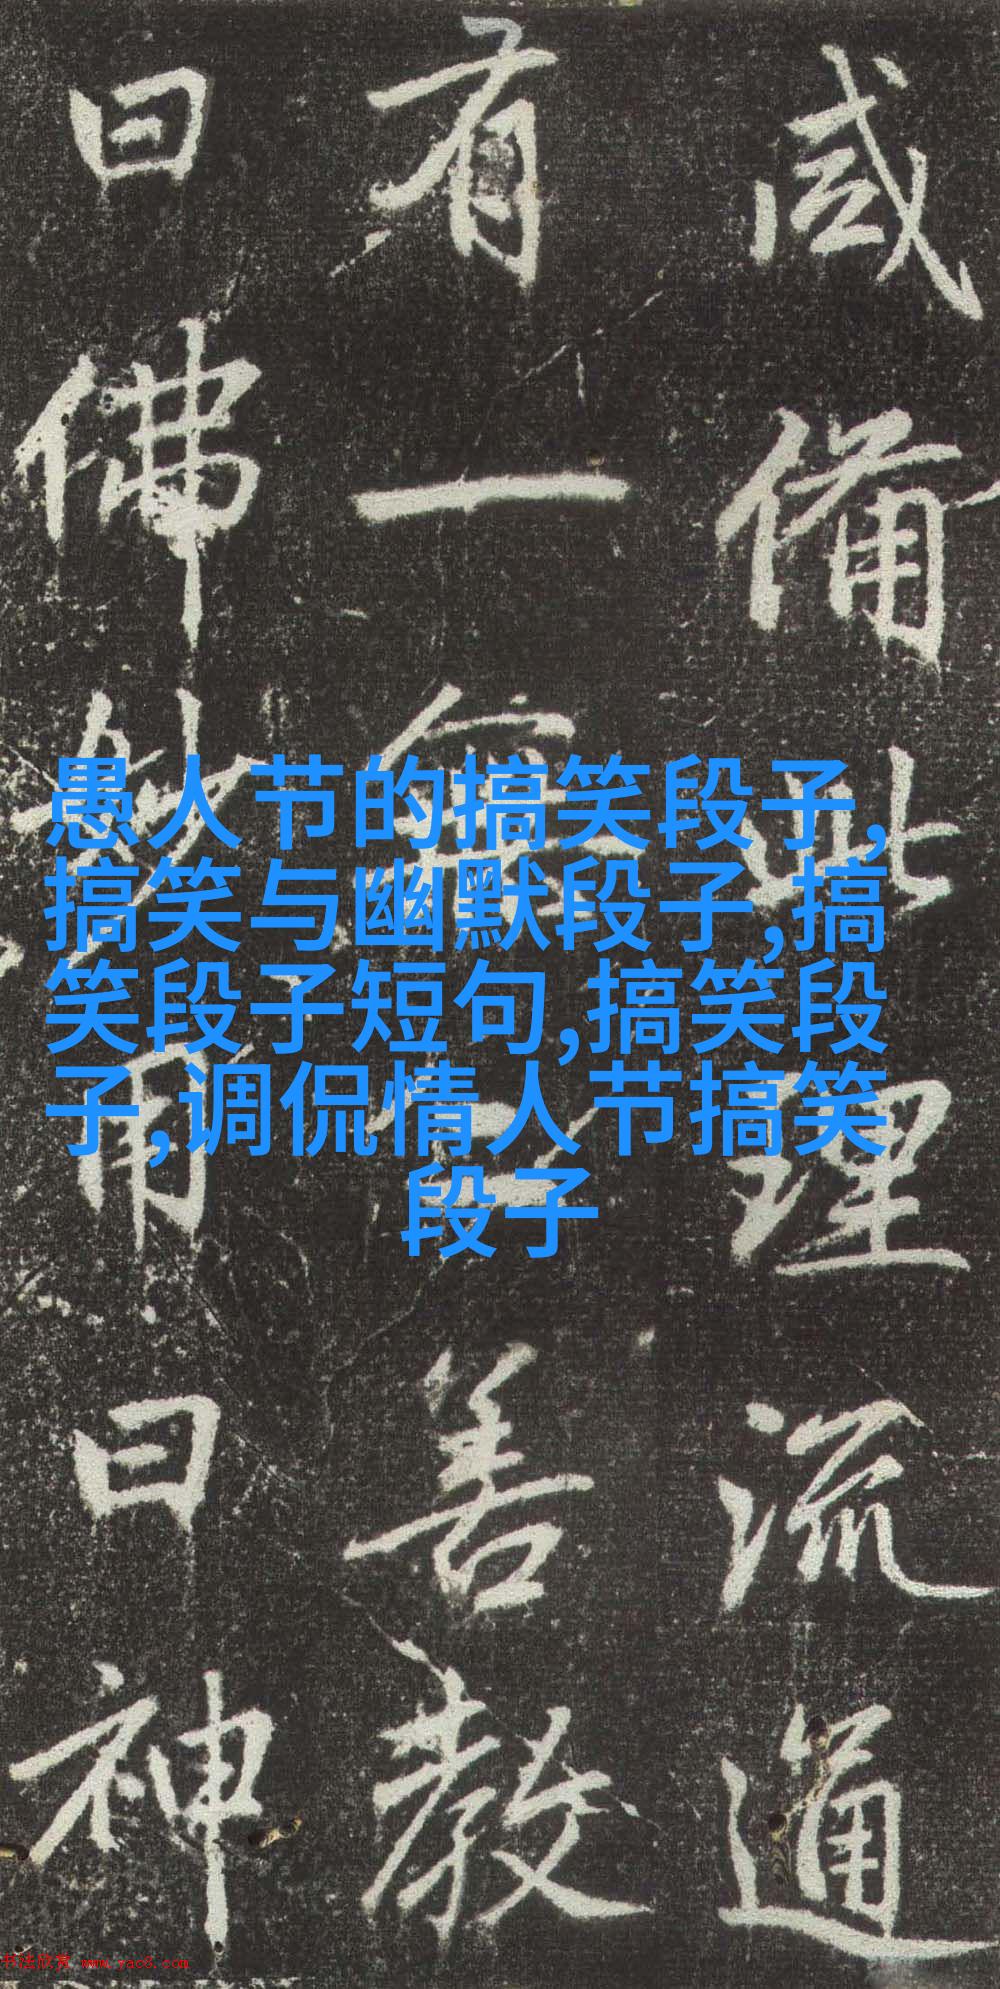 咸備此理流通
有一善教
曰佛妙用曰神
愚人节的搞笑段子,
搞笑与幽默段子,搞
笑段子短句,搞笑段
子,调侃情人节搞笑
段子
书法欣赏 www.yac8.com